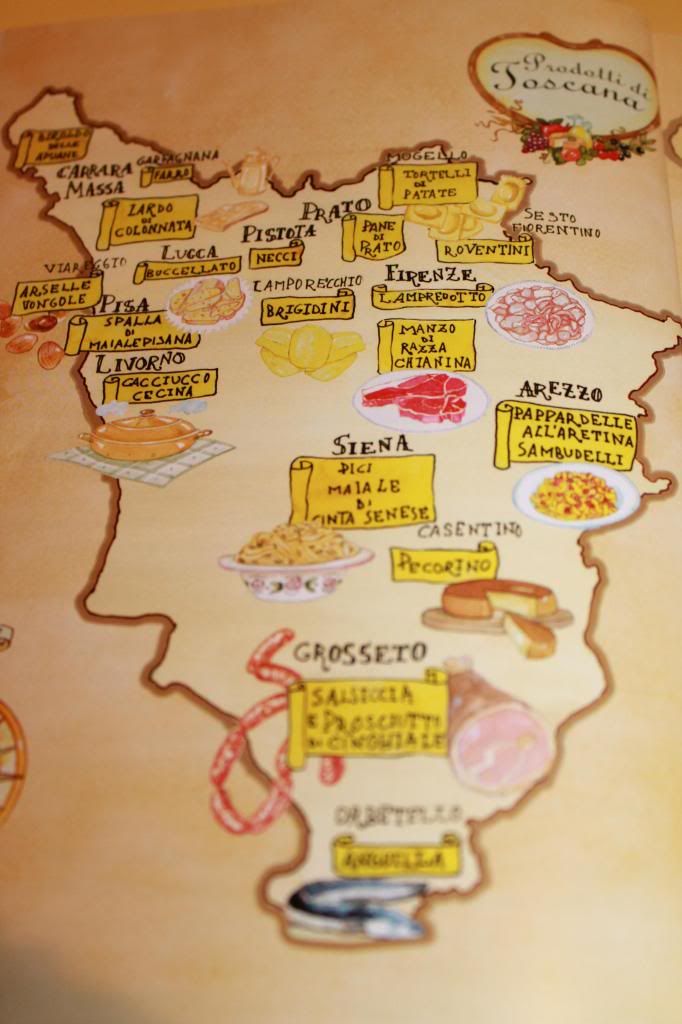 Prodotti di
Toscana
BIROLDO
DELLE
APUANE
CARRARA
MASSA
GARFAGNANA
FARRO
LARDO
DI
COLONNATA
MUGELLO
TORTELLI
DI
PATATE
PRATO
PANE
DI
PRATO
PISTOIA
NECCI
SESTO
FIORENTINO
ROVENTINI
VIAREGGIO
ARSELLE
VONGOLE
LUCCA
BUCCELLATO
LAMPORECCHIO
BRIGIDINI
FIRENZE
LAMPREDOTTO
MANZO
DI
RAZZA
CHIANINA
PISA
SPALLA
DI
MAIALE PISANA
LIVORNO
CACCIUCCO
CECINA
AREZZO
PAPPARDELLE
ALL'ARETINA
SAMBUDELLI
SIENA
PICI
MAIALE
DI
CINTA SENESE
CASENTINO
PECORINO
GROSSETO
SALSICCIA
E PROSCIUTTO
DI CINGHIALE
ORBETELLO
ANGUILLA